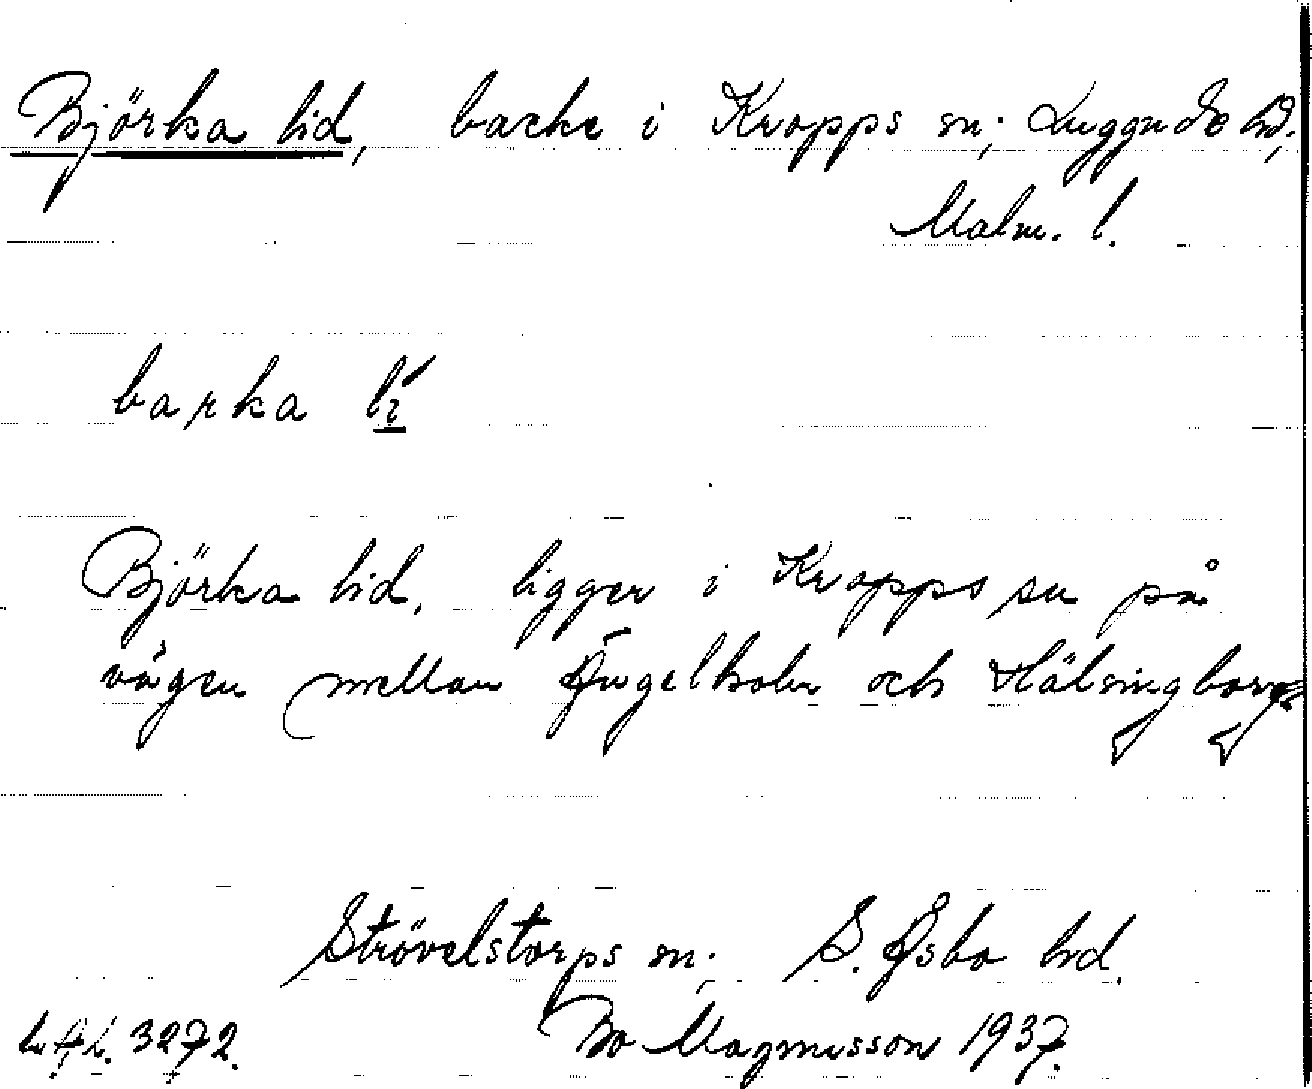 Björka lid, backe i Kropps sn; Luggude hd;
Malm. l.
barka li
Björka lid, ligger i Kropps sn på
vägen mellan Ängelholm och Hälsingborg
Strövelstorps sn; S. Åsbo hd.
3272. Bo Magnusson 1937.